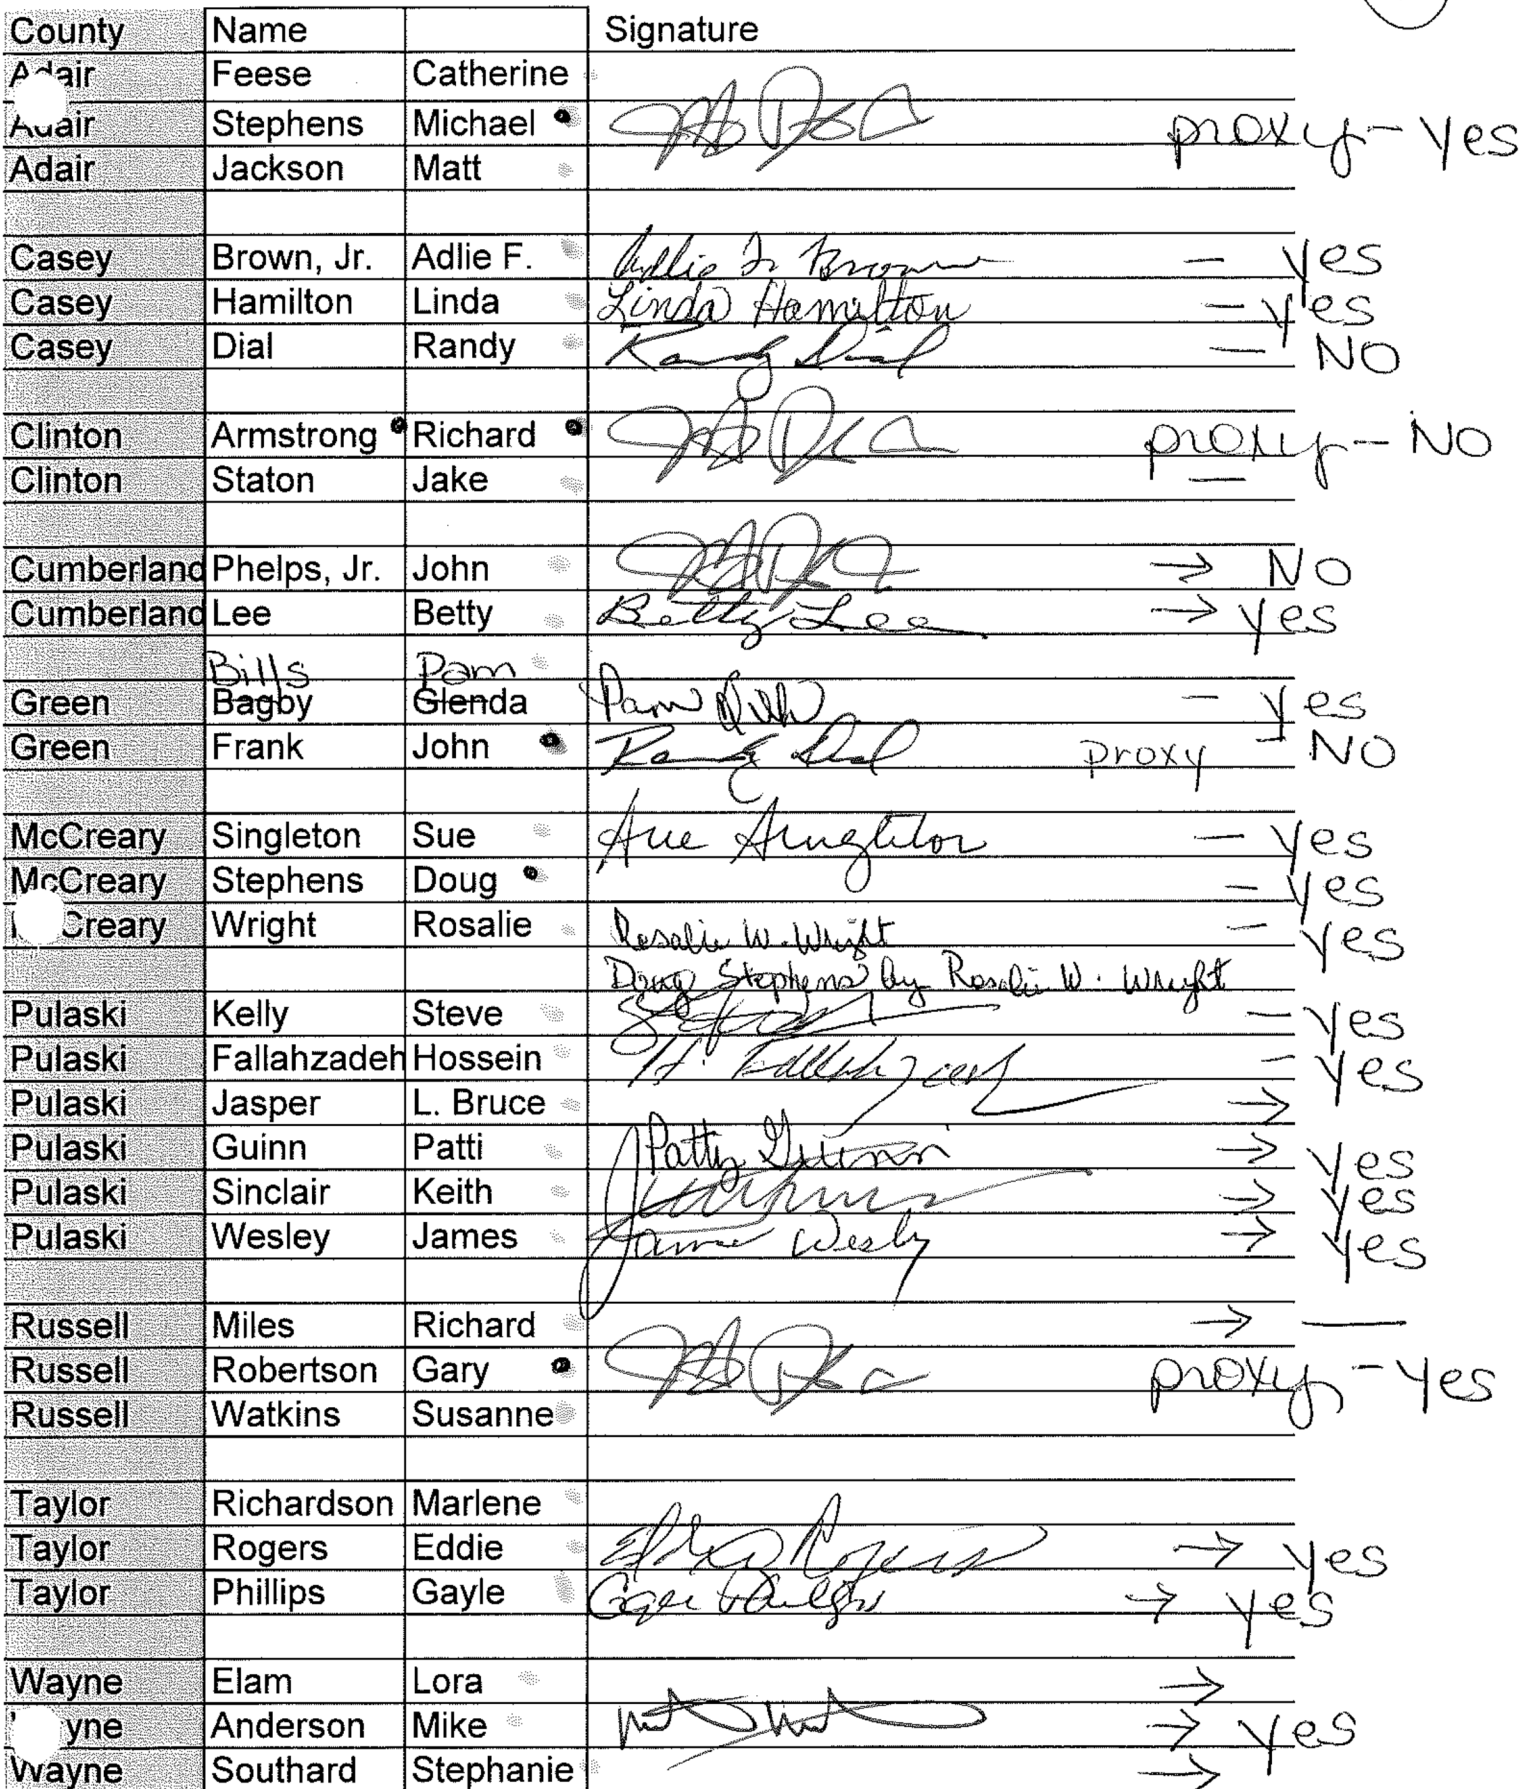 County Name Signature
Adair Feese Catherine
Adair Stephens Michael proxy - Yes
Adair Jackson Matt
Casey Brown, Jr. Adlie F. Adlie F. Brown - Yes
Casey Hamilton Linda Linda Hamilton - Yes
Casey Dial Randy Randy Dial - NO
Clinton Armstrong Richard proxy - NO
Clinton Staton Jake
Cumberland Phelps, Jr. John → NO
Cumberland Lee Betty Betty Lee → Yes
Bills Pam
Green Bagby Glenda Pam Bills - Yes
Green Frank John Randy Dial proxy - NO
McCreary Singleton Sue Sue Singleton - Yes
McCreary Stephens Doug - Yes
Creary Wright Rosalie Rosalie W. Wright - Yes
Doug Stephens by Rosalie W. Wright
Pulaski Kelly Steve - Yes
Pulaski Fallahzadeh Hossein H. Fallahzadeh - Yes
Pulaski Jasper L. Bruce →
Pulaski Guinn Patti Patty Guinn → Yes
Pulaski Sinclair Keith → Yes
Pulaski Wesley James James Wesley → Yes
Russell Miles Richard → —
Russell Robertson Gary proxy - Yes
Russell Watkins Susanne
Taylor Richardson Marlene
Taylor Rogers Eddie Eddie Rogers → Yes
Taylor Phillips Gayle Gayle Phillips → Yes
Wayne Elam Lora →
yne Anderson Mike → Yes
Wayne Southard Stephanie →